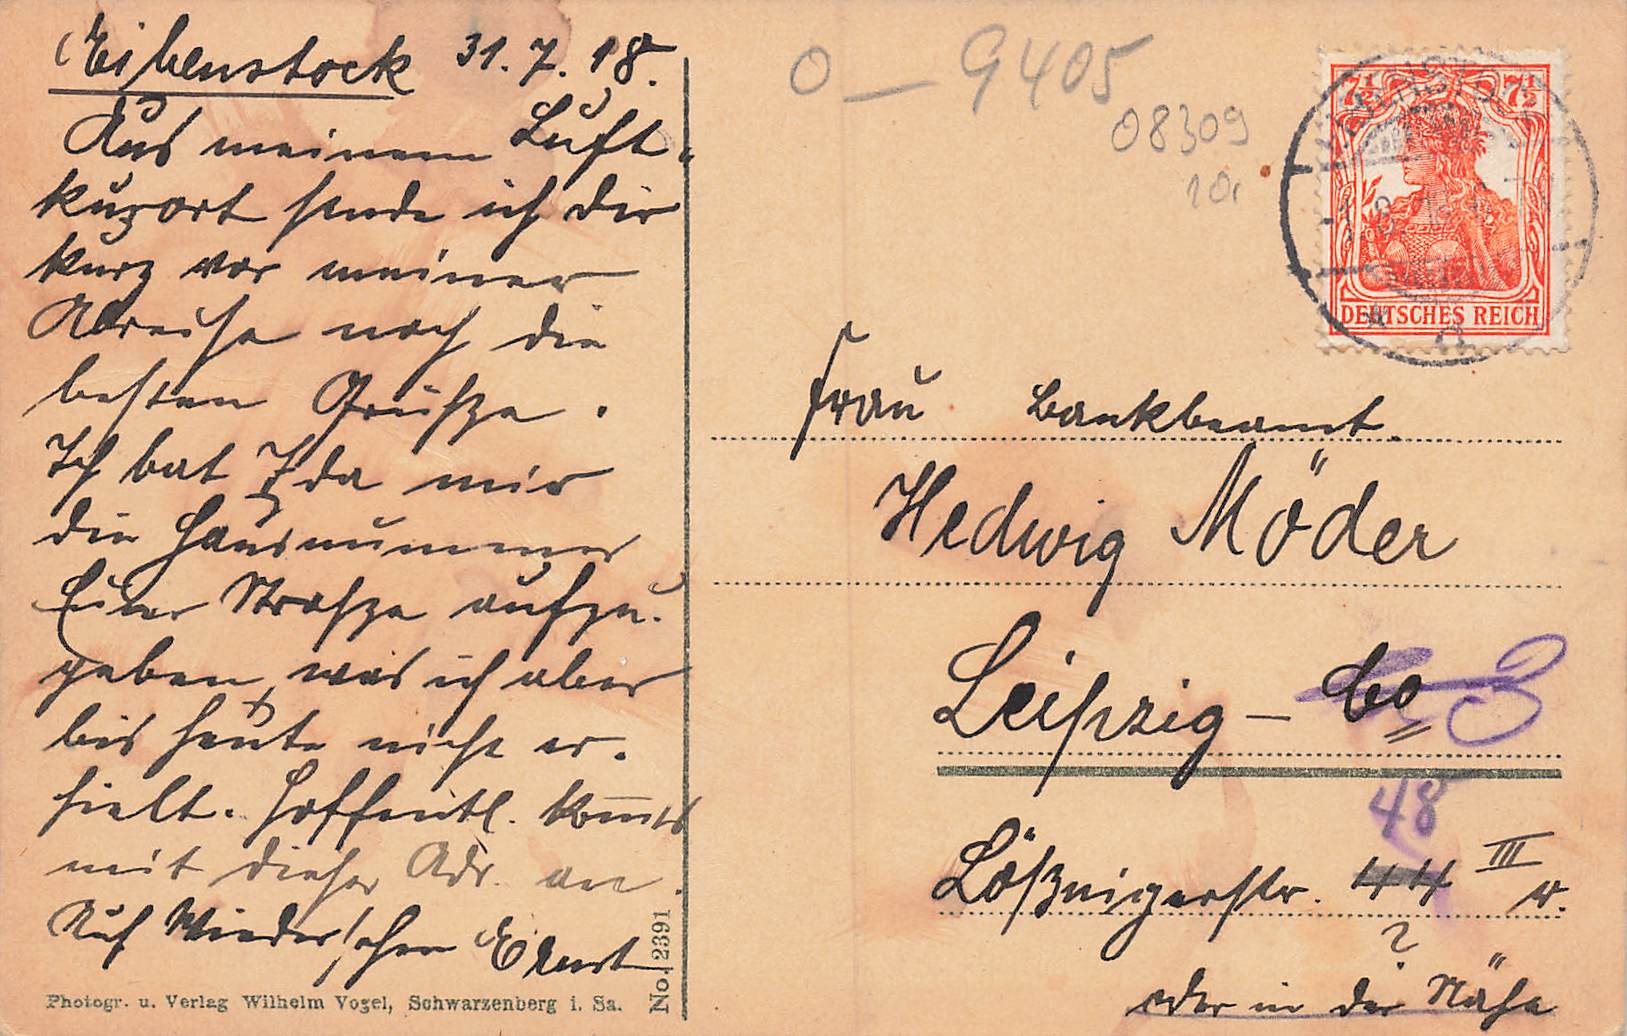 Eibenstock 31.7.18.
Aus meinem Luft-
kurort sende ich dir
kurz vor meiner
Abreise noch die
besten Grüsze.
Ich bat Ida mir
die Hausnummer
Eurer Strasze aufzu-
geben, was ich aber
bis heute nicht er-
hielt. Hoffentl. kommts
mit dieser Adr. an.
Auf Wiedersehen Ernst
Photogr. u. Verlag Wilhelm Vogel, Schwarzenberg i. Sa.
No. 2391
O — 9405
08309
10,
7½ 7½
DEUTSCHES REICH
Frau Bankbeamt.
Hedwig Möder
Leipzig – Co 3
48
Lößnigerstr. 44 III r.
?
oder in der Nähe